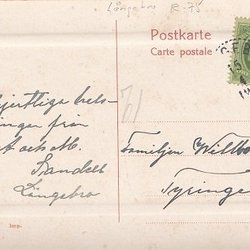 Långebro R-75
Postkarte
Carte postale
Hjertliga hels-
ningar från
A och M.
Sandell
Långebro
71
Familjen Willbo
Tyringe